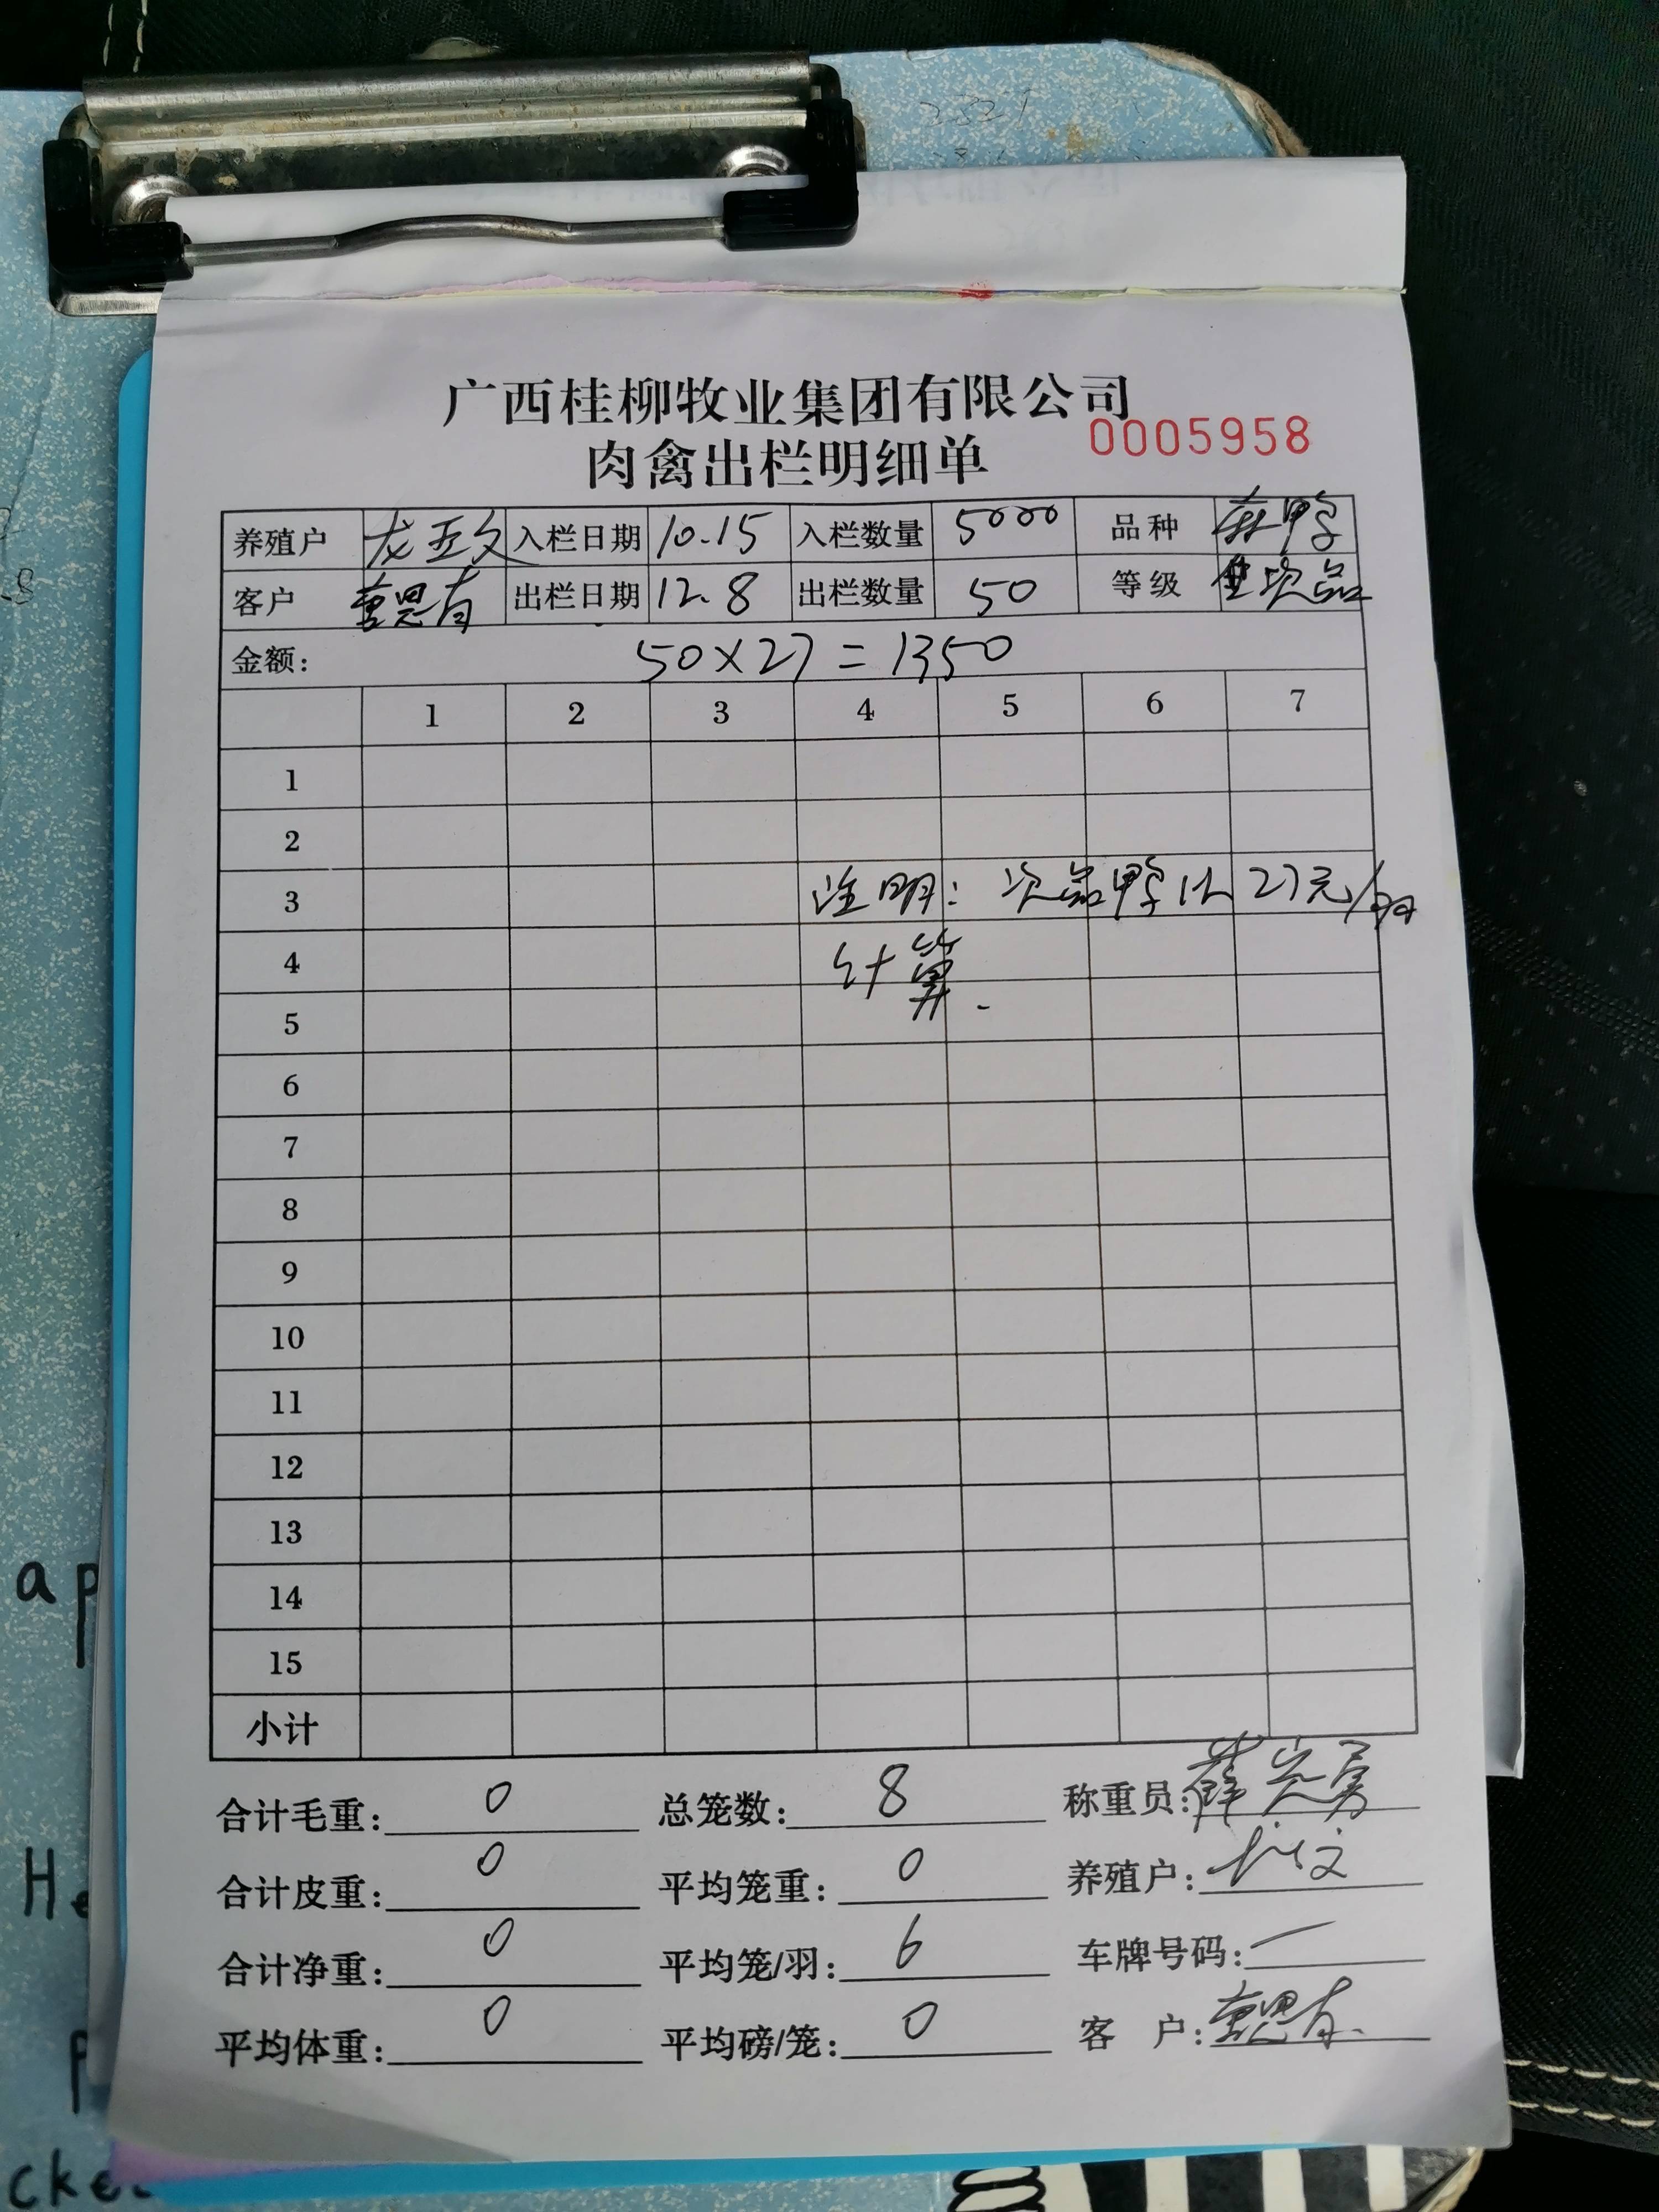 广西桂柳牧业集团有限公司
0005958
肉禽出栏明细单
养殖户 龙亚文 入栏日期 10.15 入栏数量 5000 品种 麻鸭
客户 出栏日期 12.8 出栏数量 50 等级 次品
金额: 50×27=1350
1 2 3 4 5 6 7
1
2
3 注明: 次品鸭以27元/羽
4 计算.
5
6
7
8
9
10
11
12
13
14
15
小计
合计毛重: 0 总笼数: 8 称重员:
合计皮重: 0 平均笼重: 0 养殖户:
合计净重: 0 平均笼/羽: 6 车牌号码: 一
平均体重: 0 平均磅/笼: 0 客 户:
ap
He
p
cke